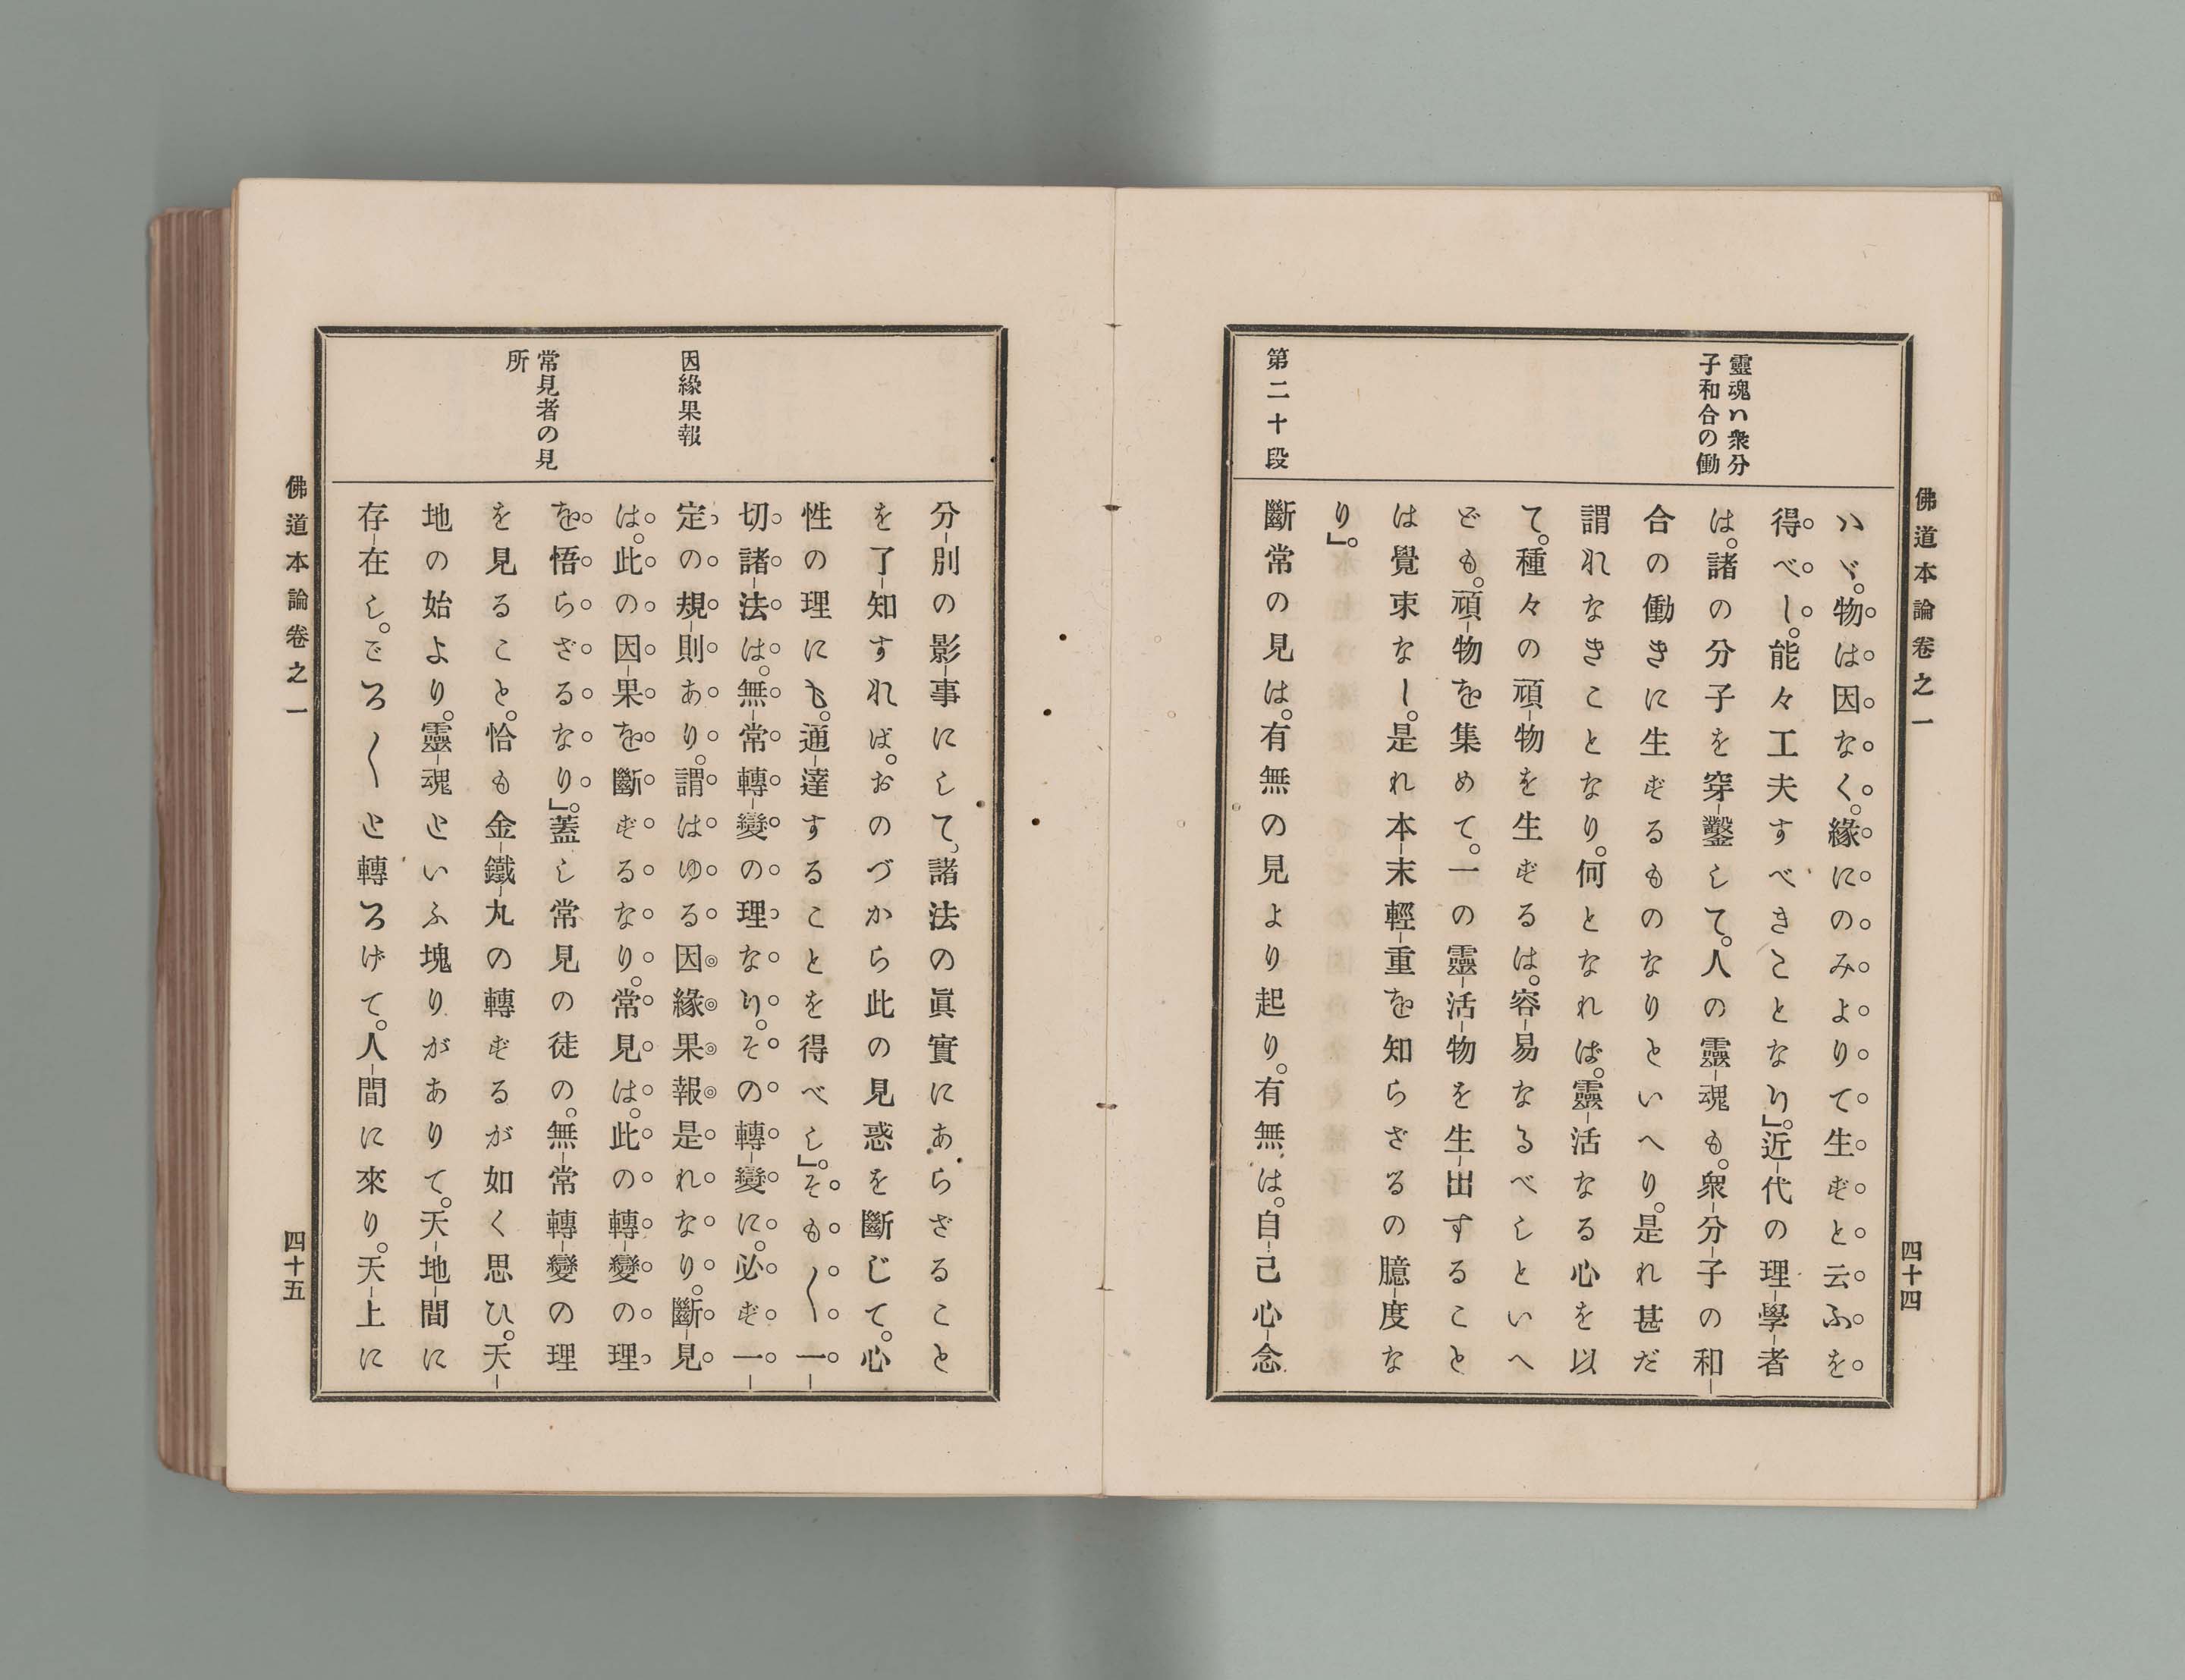 佛道本論卷之一
四十四
靈魂ハ衆分
子和合の働
第二十段
ハヾ。物は因なく。緣にのみよりて生ずと云ふを
得べし。能々工夫すべきことなり」。近代の理學者
は。諸の分子を穿鑿して。人の靈魂も。衆分子の和
合の働きに生ずるものなりといへり。是れ甚だ
謂れなきことなり。何となれば。靈活なる心を以
て。種々の頑物を生ずるは。容易なるべしといへ
ども。頑物を集めて。一の靈活物を生出すること
は覺束なし。是れ本末輕重を知らざるの臆度な
り」。
斷常の見は。有無の見より起り。有無は。自己心念
因緣果報
常見者の見
所
分別の影事にして、諸法の眞實にあらざること
を了知すれば。おのづから此の見惑を斷じて。心
性の理にも。通達することを得べし」。そも〳〵一
切諸法は。無常轉變の理なり。その轉變に。必ず一
定の規則あり。謂はゆる因緣果報是れなり。斷見
は。此の因果を斷ずるなり。常見は。此の轉變の理
を悟らざるなり」。蓋し常見の徒の。無常轉變の理
を見ること。恰も金鐵丸の轉ずるが如く思ひ。天
地の始より。靈魂といふ塊りがありて。天地間に
存在し。ころ〳〵と轉ろげて。人間に來り。天上に
佛道本論卷之一
四十五